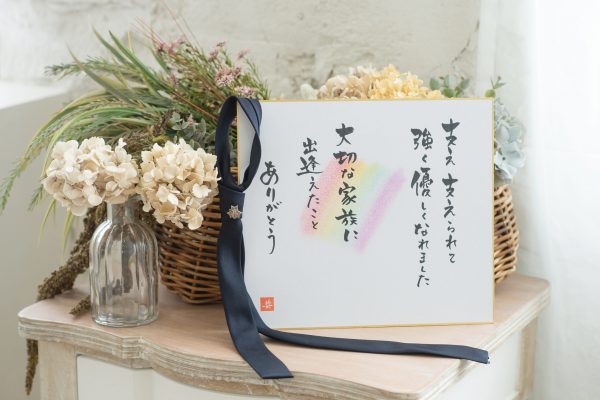 支え 支えられて
強く優しくなれました
大切な家族に
出逢えたこと
ありがとう